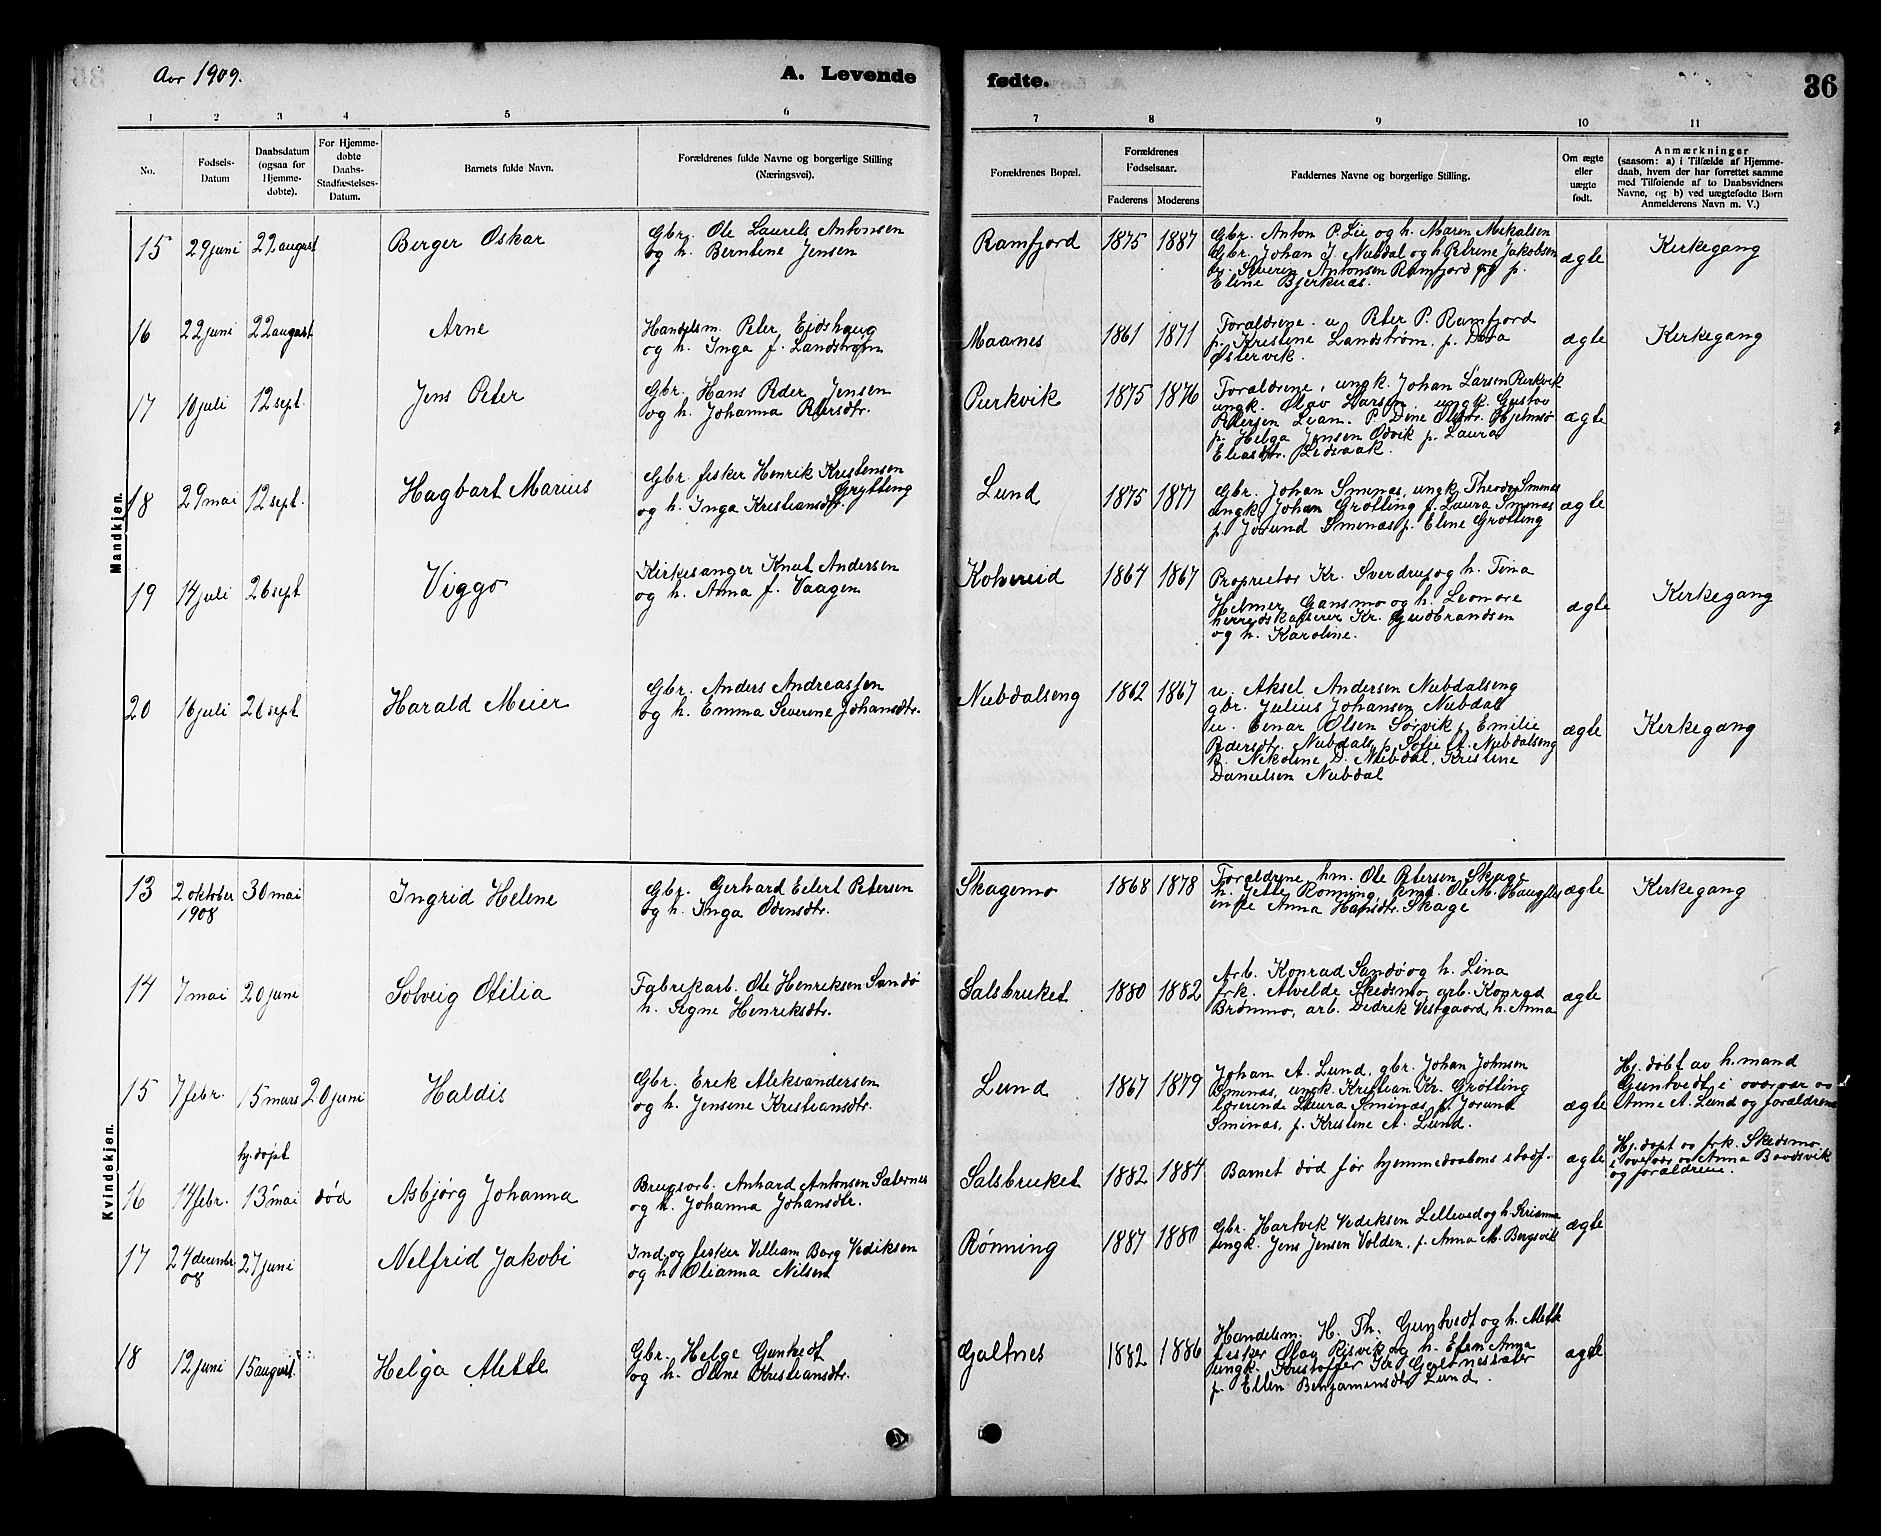 Aar 1909.
A. Levende fødte.
36
1 2 3 4 5 6 7 8 9 10 11
No.
Fødsels-
Datum
Daabsdatum
(ogsaa for
Hjemme-
døbte).
For Hjemme-
døbte
Daabs-
Stadfæstelses-
Datum.
Barnets fulde Navn.
Forældrenes fulde Navne og borgerlige Stilling
(Næringsvei).
Forældrenes Bopæl.
Forældrenes
Fødselsaar.
Faderens Moderens
Faddernes Navne og borgerlige Stilling.
Om ægte
eller
uægte
født.
Anmærkninger
(saasom: a) i Tilfælde af Hjemme-
daab, hvem der har forrettet samme
med Tilføiende af to Daabsvidners
Navne, og b) ved uægtefødte Børn
Anmelderens Navn m. V.)
Mandkjøn.
15 29 juni 22 august Berger Oskar
Gbr. Ole Laurits Antonsen
og h. Berntine Jensen
Ramfjord 1875 1887
Gbr. Anton P. Lie og h. Maren Mikalsen
Gbr. Johan J. Nubdal og h. Petrine Jakobsen
Severin Antonsen Ramfjord og p.
Eline Bjerknes.
ægte Kirkegang
16 22 juni 22 august Arne
Handelsm. Peter Eidshaug
og h. Inga f. Landstrøm
Maanes 1861 1871
Forældrene. u. Peter P. Ramfjord
p. Kristine Landstrøm, p. Dora
Østervik.
ægte Kirkegang
17 10 juli 12 sept. Jens Peter
Gbr. Hans Peder Jensen
og h. Johanna Petersdtr.
Purkvik 1875 1876
Forældrene, ungk. Johan Larsen Purkvik
ungk. Olav Larsen ungk. Gustav
Petersen Lian. P. Dine Olsdtr. Hjelmsø
p. Helga Jensen Odvik p. Laura
Eliasdtr.
ægte
18 29 mai 12 sept. Hagbart Marius
Gbr. fisker Henrik Kristensen
Grytting
og h. Inga Kristiansdtr.
Lund 1875 1877
Gbr. Johan Sminæs, ungk. Theodor Sminæs
ungk. Johan Grøtting p. Laura Sminæs
p. Jorund Sminæs p. Eline Grøtting
ægte
19 14 juli 26 sept Viggo
Kirkesanger Knut Andersen
og h. Anna f. Vaagen
Kolvereid 1864 1867
Proprietær Kr. Sverdrup og h. Tina
Helmer Gansmo og h. Leonore
herredskasserer Kr. Gudbrandsen
og h. Karoline.
ægte Kirkegang
20 16 juli 26 sept Harald Meier
Gbr. Anders Andreassen
og h. Emma Severine Johansdtr.
Nubdalseng 1862 1867
u. Aksel Andersen Nubdalseng
gbr. Julius Johansen Nubdal
u. Einar Olsen Sørvik p. Emilie
Pedersdtr. Nubdal, p. Sofie A. Nubdalseng
p. Nikoline D. Nubdal, Kristine
Danielsen Nubdal
ægte Kirkegang
Kvindekjøn.
13 2 oktober 30 mai Ingrid Helene
1908
Gbr. Gerhard Eilert Petersen
og h. Inga Odinsdtr.
Skagemo 1868 1878
Forældrene, hm. Ole Petersen Skage
h. Jette Rønning, kmd. Ole M.
enke Anna Hansdtr. Skage
ægte Kirkegang
14 7 mai 20 juni Solveig Otilia
Fabrikarb. Ole Henriksen Sandø
h. Signe Henriksdtr.
Salsbruket 1880 1882
Arb. Konrad Sandø og h. Lina
frk. Alvilde Skedsmo, arb. Konrad
Brønmo, arb. Didrik Vestgaard, h. Anna
ægte
15 7 febr. 15 mars 20 juni Haldis
Gbr. Erik Aleksandersen
og h. Jensine Kristiansdtr.
Lund 1867 1879
Johan A. Lund, gbr. Johan Johnsen
Sminæs, ungk. Kristian Kr. Grøtting
lærerinde Laura Sminæs, p. Jorund
Sminæs, p. Kristine A. Lund.
ægte
Hj. døbt av h. mand
Guntvedt i overvær av
Anne A. Lund og forældrene
hj. døpt
16 14 febr. 13 mai død Asbjørg Johanna
Brugsarb. Anhard Antonsen Saternes
og h. Johanna Johansdtr.
Salsbruket 1882 1884
Barnet død før hjemmedaabens stadf.
ægte
Hj. døpt av frk. Skedsmo
i overvær av Anna Baadsvik
og forældrene.
17 24 decembr 27 juni Nelfrid Jakobi
08
Ind. og fisker Villiam Borg Vediksen
og h. Olianna Nilsen
Rønning 1887 1880
Gbr. Hartvik Vediksen Lilleved og h. Kristianna
ungk. Jens Jensen Volden, p. Anna M. Bergsvik
ægte
18 12 juni 15 august Helga Alette
Gbr. Helge Guntvedt
og h. Oline Kristiansdtr.
Galtnes 1882 1886
Handelsm. H. Th. Guntvedt og h. Alette
fisker Olav Risvik og h. Anna
ungk. Kristoffer Kr. Galtnes
p. Ellen Benjaminsdtr. Lund.
ægte